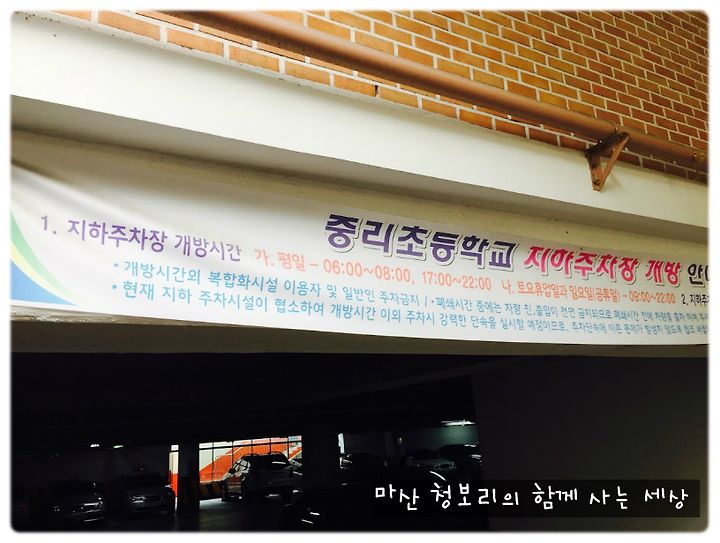 중리초등학교 지하주차장 개방 안
1. 지하주차장 개방시간 가. 평일 – 06:00~08:00, 17:00~22:00 나. 토요휴업일과 일요일(공휴일) – 09:00~22:00 2. 지하주
• 개방시간외 복합화시설 이용자 및 일반인 주차금지 / • 폐쇄시간 중에는 차량 진.출입이 전면 금지되므로 폐쇄시간 전에 차량을 출차 하여
• 현재 지하 주차시설이 협소하여 개방시간 이외 주차시 강력한 단속을 실시할 예정이므로, 주차단속에 따른 문제가 발생치 않도록 협조
마산 청보리의 함께 사는 세상